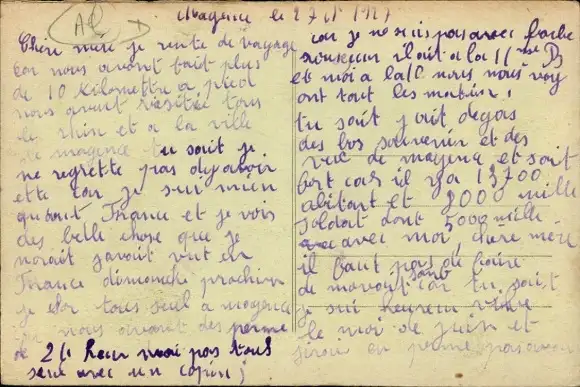 Mayence le 27 1927
Chère mère je rentre de voyage
car nous avont fait plus
de 10 Kilometre a pied
nous avont visitée tous
le rhin et a la ville
de mayence tu sait je
ne regrette pas dy avoir
ette car je sui mieu
quesant France et je vois
des belle chose que je
norait javoit vut en
France dimanche prochin
je sor tous seul a mayence
car nous avont des perme
de 24 heur mai pas tous
seul avec un copin;
car je ne sui pas avec
il ait a la 11 me B
et moi a la 10 nous nous voy
ont tout les matin,
tu sait j ait degas
des bos souvenir et des
vue de mayence et sait
bort car il y a 13700
abitant et 2000 mille
soldat dont 5000 mille
avec moi, chère mère
il faut pas de faire
de mauvait sant car tu sait
je sui heureu vivre
le moi de juin et
siroi en perme